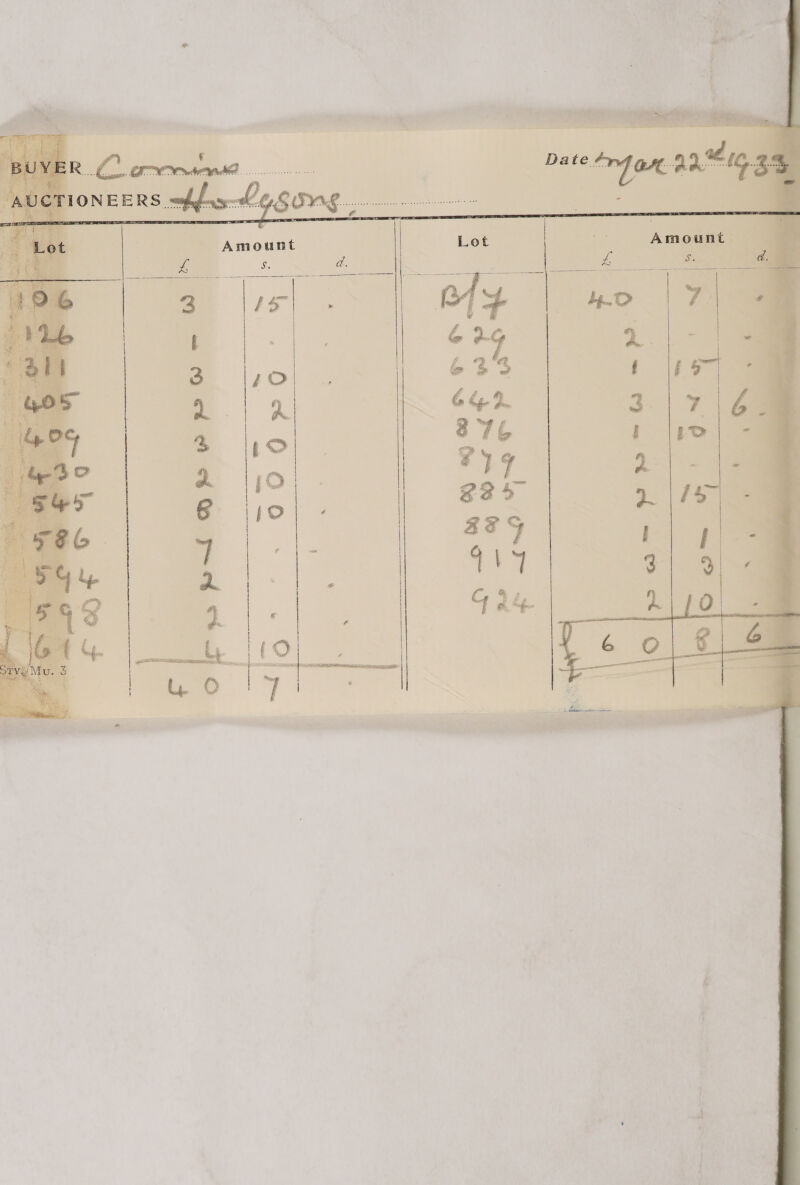 BUYER Commins Date Mar 22nd 1933
AUCTIONEERS Hodgsons
Lot Amount Lot Amount
£ s. d. £ s. d.
106 3 15 - B/f 40 7 -
126 1 - - 629 2 - -
311 3 10 - 633 1 15 -
405 2 2 642 3 7 6
409 3 10 876 1 10 -
430 2 10 879 2 - -
545 8 10 - 885 2 15 -
586 7 - - 889 1 1 -
594 2 - - 917 3 3 -
598 2 - - 924 2 10 -
614 4 10 - £ 60 8 6
Sty. Mu. 3
40 7 -